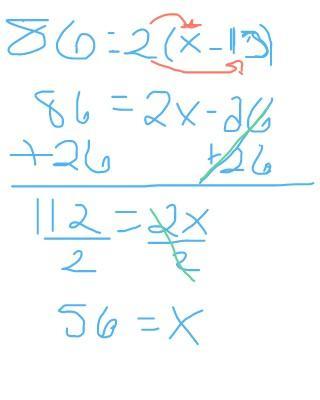 86 = 2(x - 13)
86 = 2x - 26
+26 +26
112 = 2x
2 2
56 = x